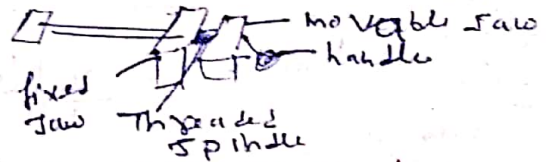 movable Jaw
handle
fixed
Jaw
Threaded
Spindle